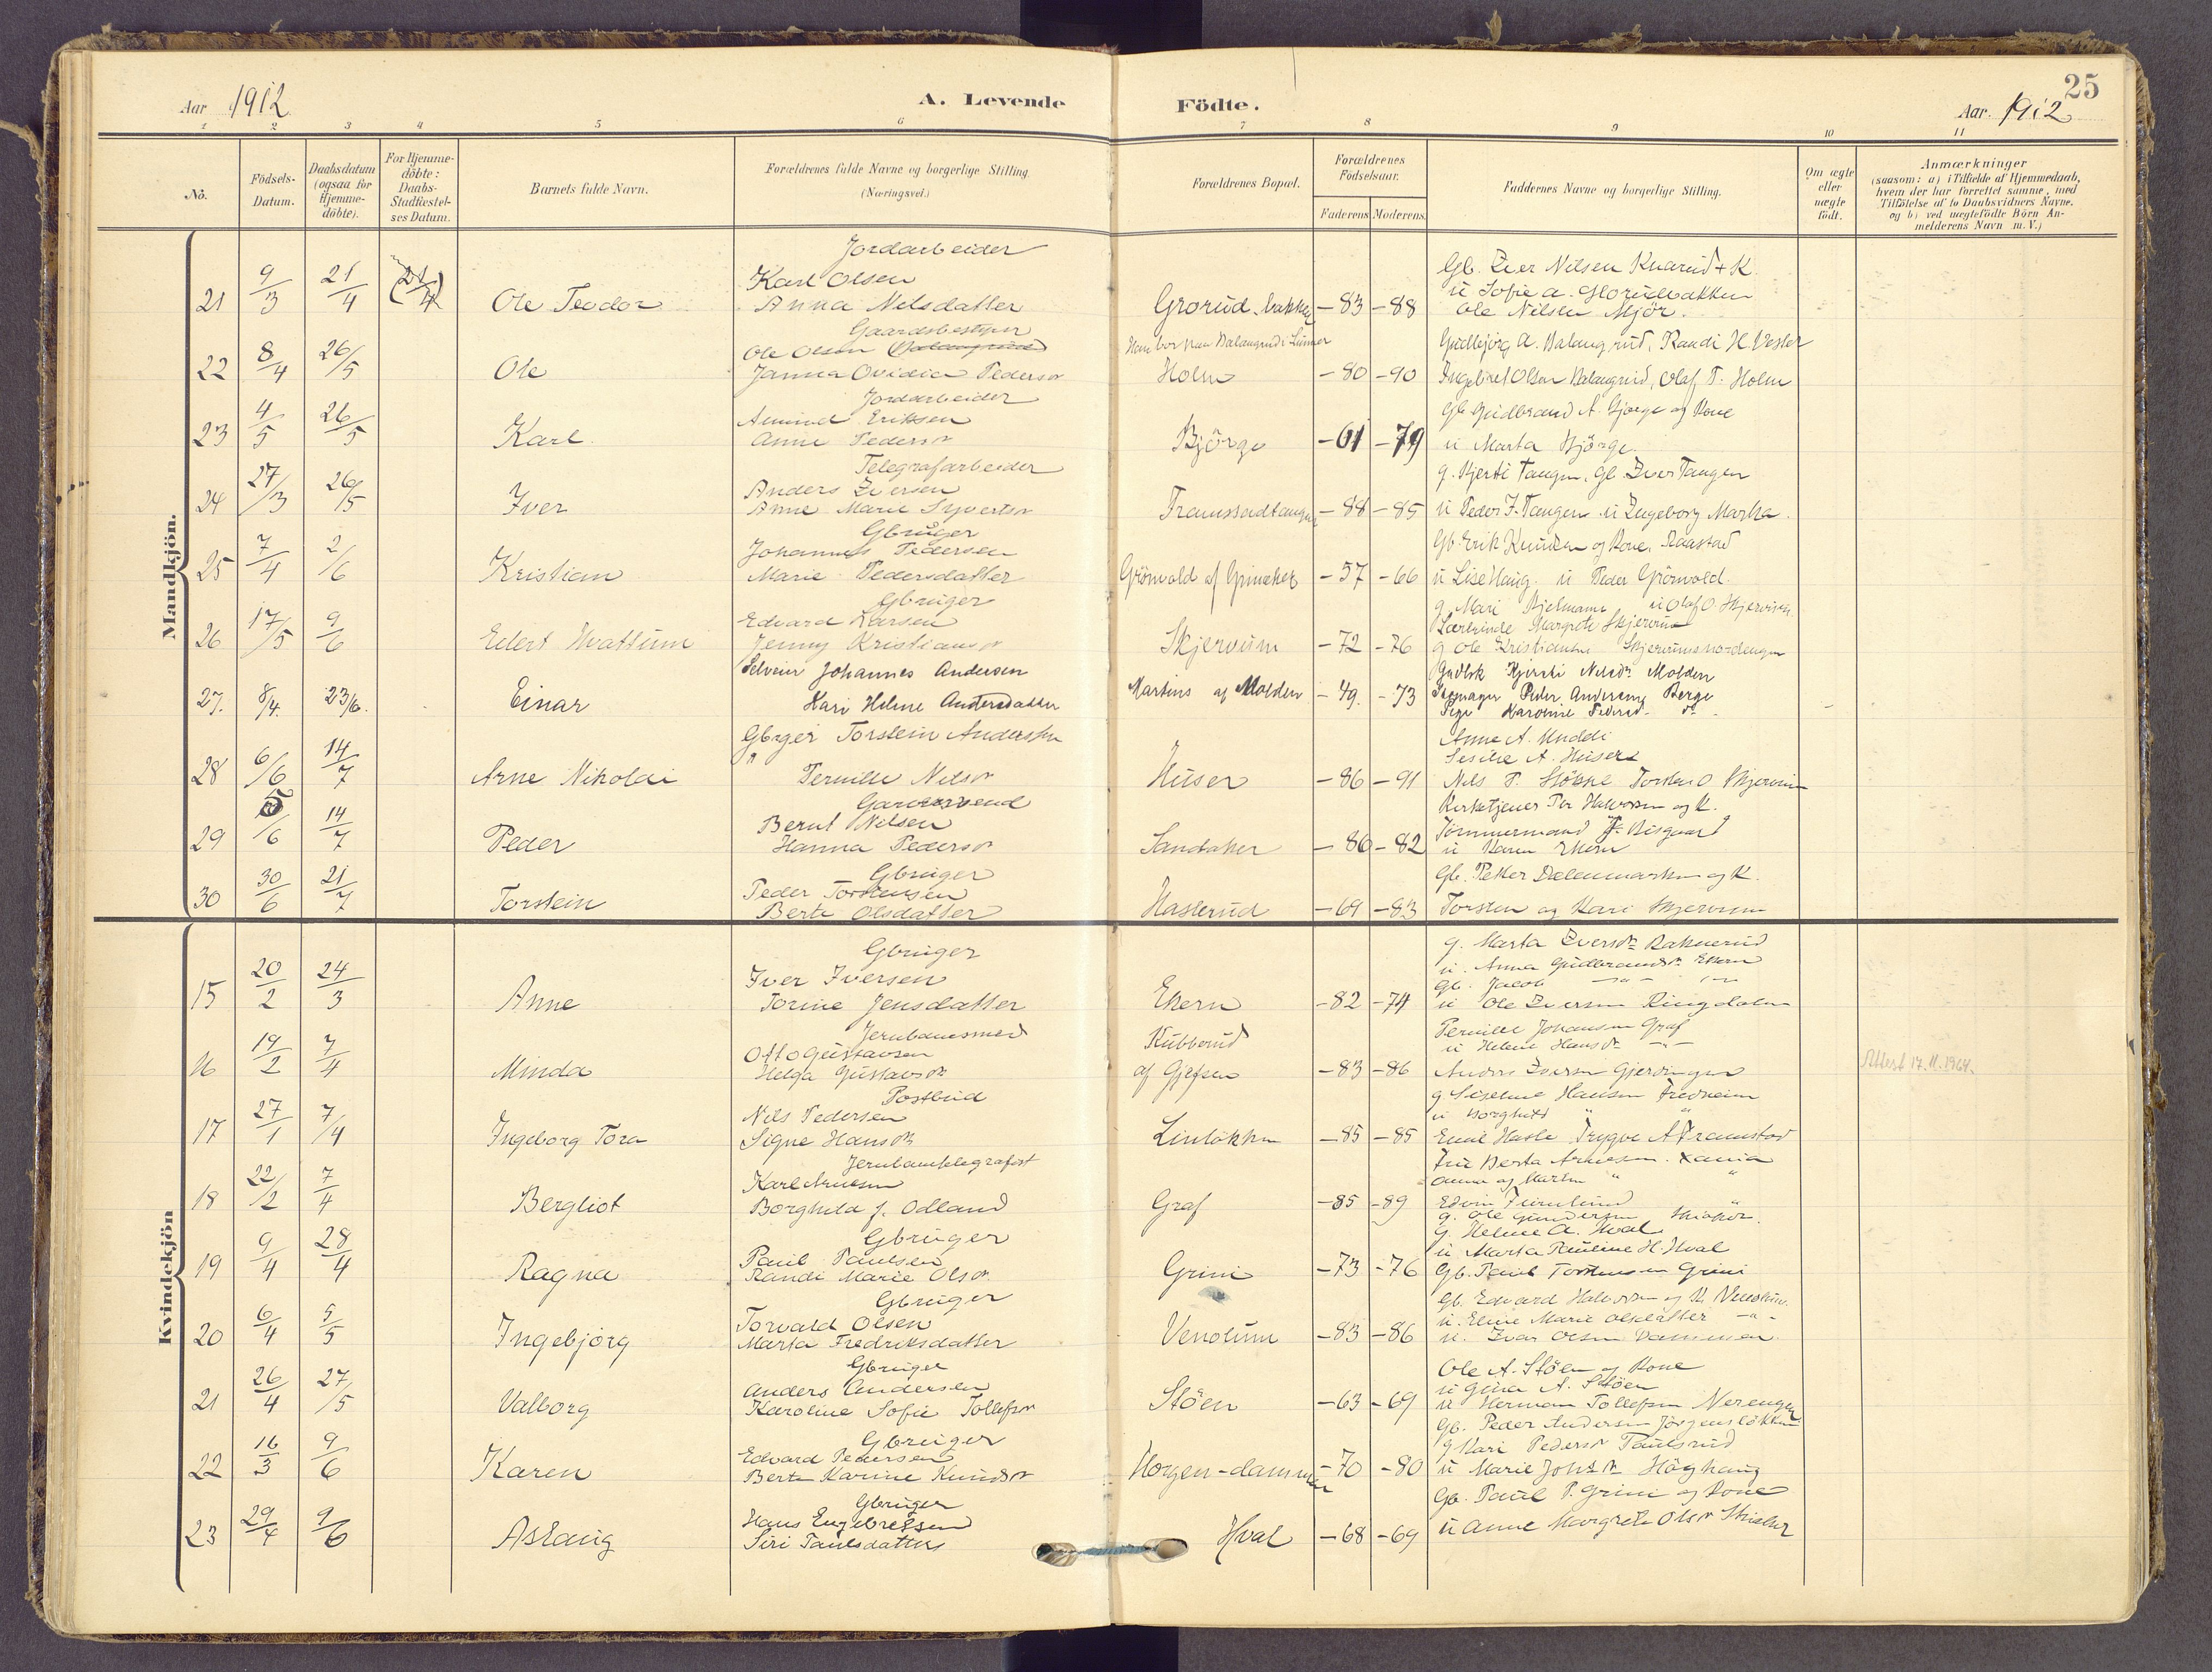 25
Aar 1912
A. Levende Födte.
Aar. 1912
1 2 3 4 5 6 7 8 9 10 11
No.
Födsels-Datum.
Daabsdatum (ogsaa for Hjemme-döbte).
For Hjemme-döbte: Daabs-Stadfæstel-ses Datum.
Barnets fulde Navn.
Forældrenes fulde Navne og borgerlige Stilling.
(Næringsvei.)
Forældrenes Bopæl.
Forældrenes Födselsaar.
Faderens Moderens.
Faddernes Navne og borgerlige Stilling.
Om ægte eller uægte födt.
Anmærkninger
(saasom: a) i Tilfælde af Hjemmedaab,
hvem der har forrettet samme, med
Tilföielse af to Daabsvidners Navne.
og b) ved uægtefödte Börn An-
melderens Navn m. V.)
Mandkjön.
Jordarbeider
21 9/3 21/4 (21/4) Ole Teodor
Karl Olsen
Anna Nilsdatter
Grorud-bakken -83 -88
Gb. Iver Nilsen Knarud + K.
u Sofie A.
Ole Nilsen Mjör.
Gaardsbestyrer
22 8/4 26/5 Ole
Ole Olsen
Janna Ovidia Pedersdr
Han bor paa Dalangrud i Lunner
Holm -80 -90
Gudbjörg A. Dalangrud, Randi H. Vester
Olsen Dalangrud, Olaf T. Holm
Jordarbeider
23 4/5 26/5 Karl
Amund Eriksen
Anne Pedersdr
Björge -61 -79
Gb. Gudbrand A. Bjørge og Kone
u Marta Bjørge.
Telegrafarbeider
24 27/3 26/5 Iver
Anders Iversen
Anne Marie Syvertsdr
-88 -85
g. Kjersti Tangen. Gb. Iver Tangen
u Peder I. Tangen. u Ingeborg Marka.
Gbruger
25 7/4 2/6 Kristian
Johannes Pedersen
Marie Pedersdatter
Grönvold af Grinaker -57 -66
Gb. Erik Knudsen og Kone, Raastad
u Lise Haug. u Peder Grönvold.
Gbruger
26 17/5 9/6 Edert Hvattum
Edvard Larsen
Jenny Kristiansdr
Skjervum -72 -76
g. Mari Bjelmann u Olaf O Skjervum
Lærerinde Margrete Skjervum
g Ole Kristiansen Skjervumsnordengen
27. 8/4. 23/6. Einar
Selveier Johannes Andersen
Kari Helene Andersdatter
Martins af Molden -49. -73
Kjersti Nilsdr Molden
Skomager Peder Andersen Berge
Pige Karoline Pedersd. do
28 6/6 14/7 Arne Nikolai
Gbrger Torstein Andersen
Pernille Nilsdr
Huser -86 -91
Anne A. Unddi
Sesilie A. Huser
Nils P. Torsten O Skjervum
29 5/6 14/7 Peder
Bernt Nilsen
Hanna Pedersdr
Sandaker -86 -82
Kirketjener Per Halvorsen og K.
Tömmermand P. Bisgaard
u Karen Ekern
Gbruger
30 30/6 21/7 Torstein
Peder Torstensen
Berte Olsdatter
Haslerud -69 -83
Gb. Petter Dælenmarken og K.
Torsten og Kari Skjervum
Kvindekjön
Gbruger
15 20/2 24/3 Anne
Iver Iversen
Torine Jensdatter
Ekern -82 -74
g. Marta Iversdr Raknerud
u. Anna Gudbrandsdr Ekern
Gb. Jacob -"- -"-
u Ole Iversen Ringdalen
Jernbanesmed
16 19/2 7/4 Minda
Otto Gustavsen
Helga Gustavsdr
Kubberud
af Gjefsen -83 -86
Pernille Johansen Graf
u Helene Hansdr -"-
Anders Iversen Gjerdingen
Attest 17.11.1964.
Postbud
17 27/1 7/4 Ingeborg Tora
Nils Pedersen
Signe Hansdr
Linlökken -85 -85
g. Hansen Fredheim
u Borghild " "
Emil Hasle Trygve A Framstad
Jernbantelegrafist
18 22/2 7/4 Bergliot
Karl Arnesen
Borghild f. Odland
Graf -85 -89
Fru Berta Arnesen. Xania
Anna og Martin " "
Edvin Furulund "
g. Ole Gundersen
Gbruger
19 9/4 28/4 Ragna
Paul Paulsen
Randi Marie Olsdr
Grini -73 -76
g. Helene A. Hval
u Marta Pauline H. Hval
Gb. Paul Torstensen Grini
Gbruger
20 6/4 5/5 Ingebjörg
Torvald Olsen
Marta Fredriksdatter
Venolum -83 -86
Gb. Edvard Halvorsen og K. Venolum.
u. Eline Marie Olsdatter -"-
u. Ivar Olsen Dammen.
Gbruger
21 26/4 27/5 Valborg
Anders Andersen
Karoline Sofie Tollefsdr
Stöen -63 -69
Ole A. Stöen og Kone
u Gina A. Stöen
u Herman Tollefsen Nerengen
Gb. Peder Andersen Jörgenslökken
Gbruger
22 16/3 9/6 Karen
Edvard Pedersen
Berte Karine Knudsdr
Horgen-dammen -70 -80
g Kari Pedersdr Paulsrud
u Marie Johsdr Höghaug
Gbruger
23 29/4 9/6 Aslaug
Hans Engebretsen
Siri Paulsdatter
Hval -68 -69
Gb. Paul P. Grini og Kone
u Anne Margrete Olsdr